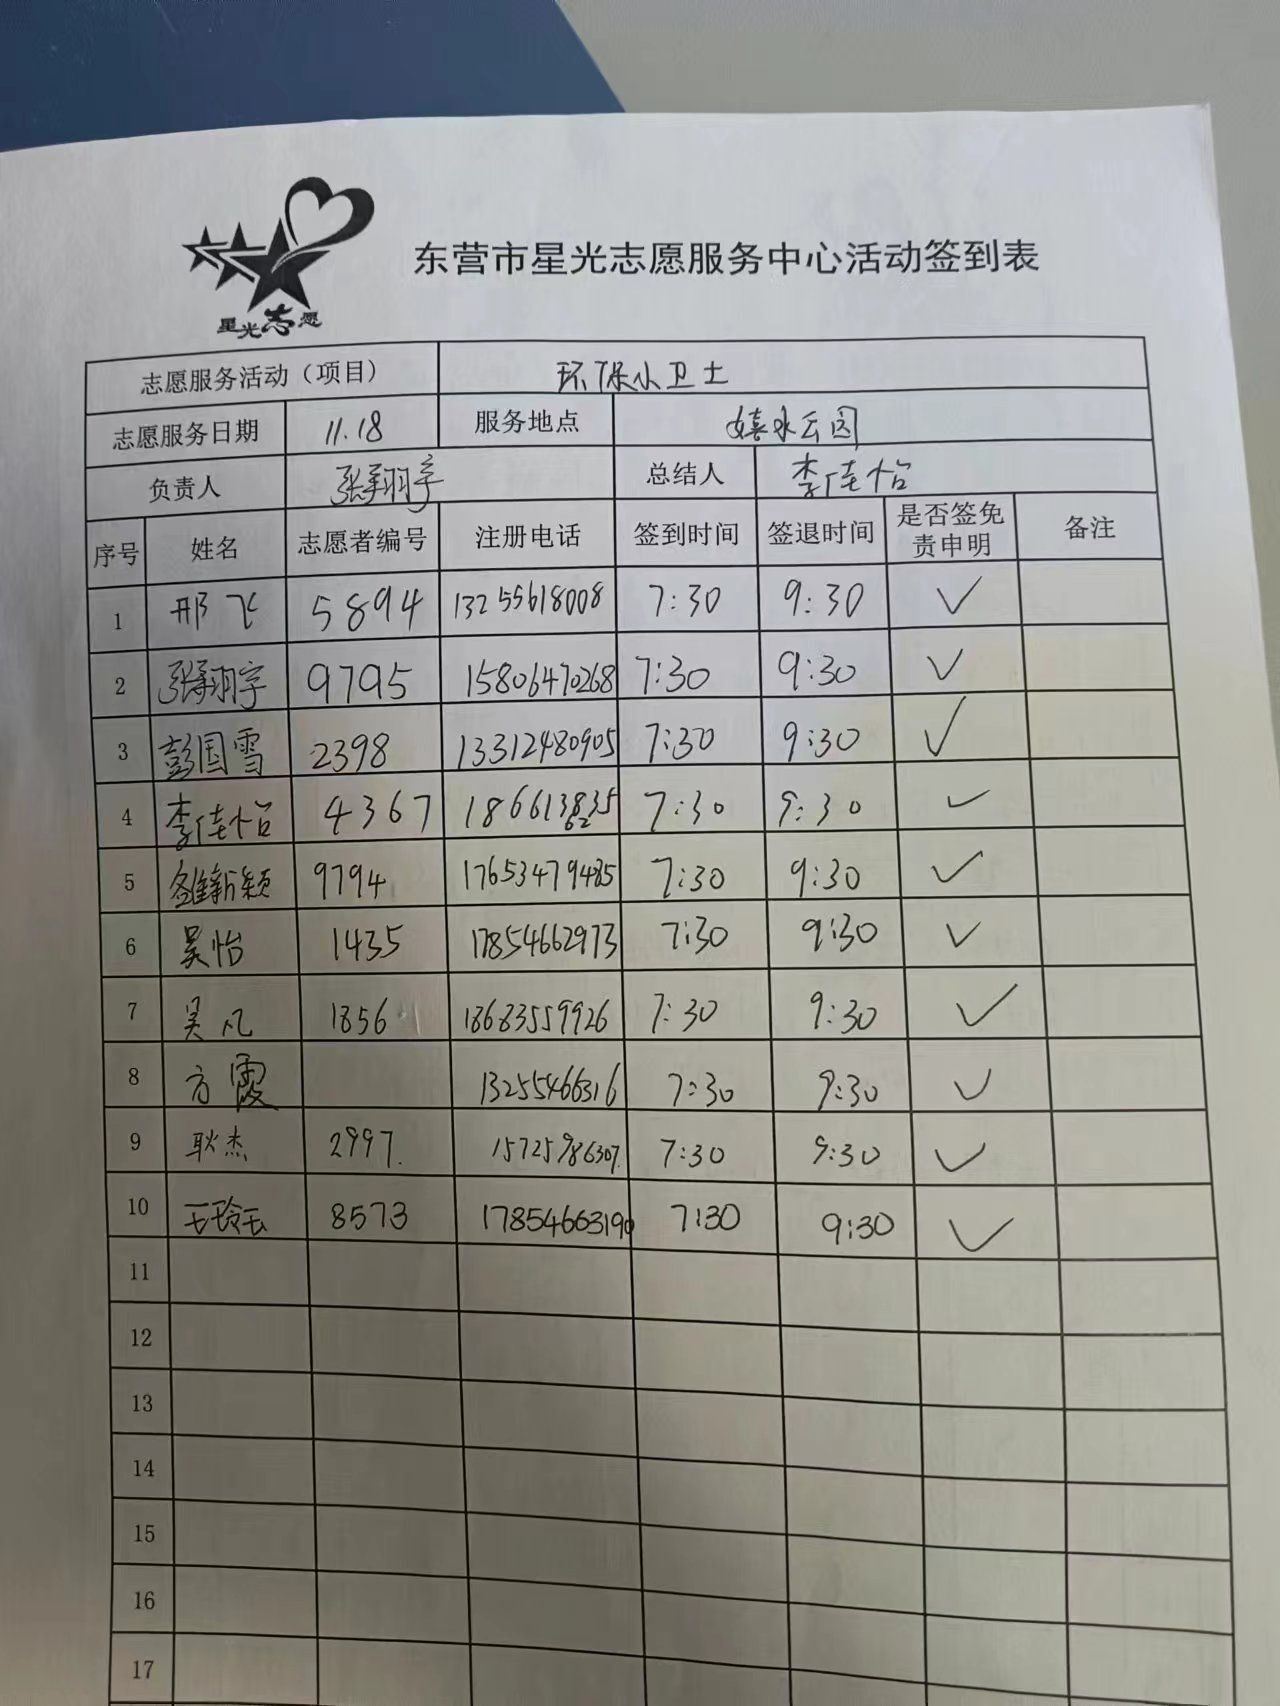 星光志愿
东营市星光志愿服务中心活动签到表
志愿服务活动（项目） 环保小卫士
志愿服务日期 11.18 服务地点 嬉水公园
负责人 张翔宇 总结人 李佳怡
序号 姓名 志愿者编号 注册电话 签到时间 签退时间 是否签免责申明 备注
1 邢飞 5894 13255618008 7:30 9:30 ✓
2 张翔宇 9795 15806470268 7:30 9:30 ✓
3 彭国雪 2398 13312480905 7:30 9:30 ✓
4 李佳怡 4367 7:30 9:30 ✓
5 新颖 9794 17653479485 7:30 9:30 ✓
6 吴怡 1435 17854662973 7:30 9:30 ✓
7 吴凡 1856 18683559926 7:30 9:30 ✓
8 方霞 13255466316 7:30 9:30 ✓
9 耿杰 2997. 15725986307. 7:30 9:30 ✓
10 王玲玉 8573 17854663190 7:30 9:30 ✓
11
12
13
14
15
16
17